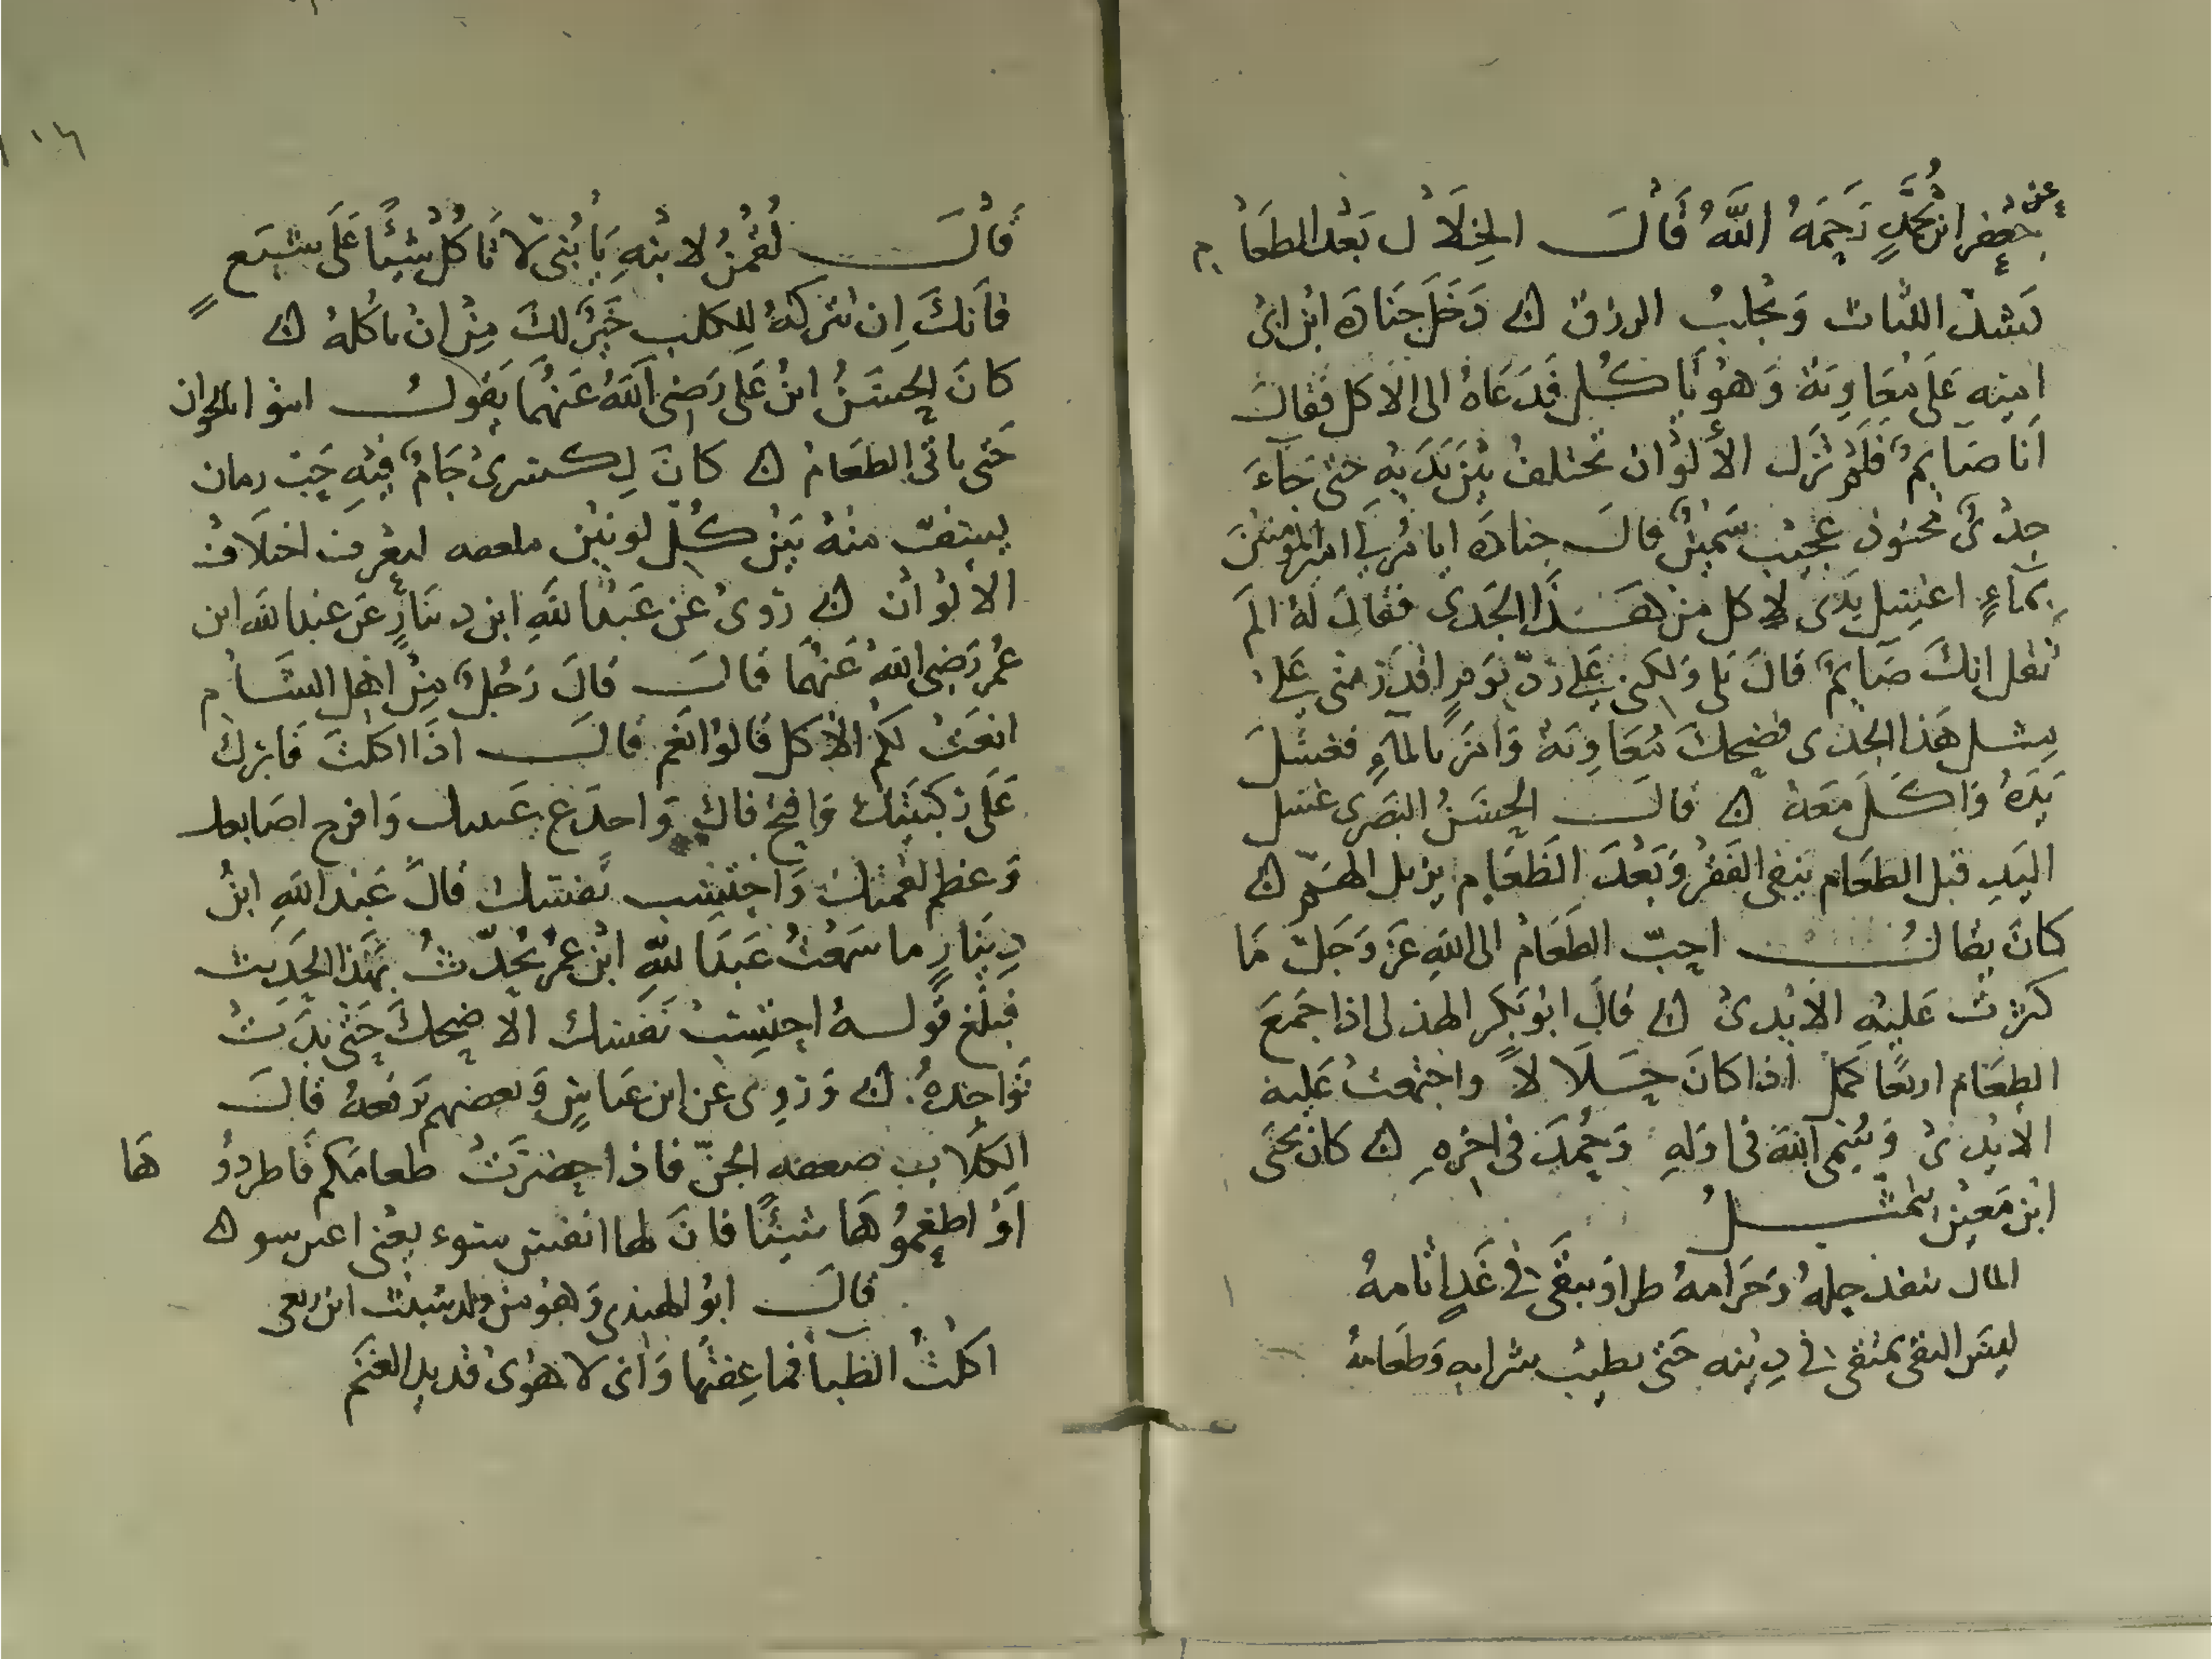 عن جعفر ابن محمد رحمه الله قال الخلال بعد الطعام
يشد اللثات ويجلب الرزق دخل جنادة ابن ابى
اميه على معاوية وهو ياكل فدعاه الى الاكل فقال
انا صايم فلم تزل الألوان تختلف بين يديه حتى جاء
جدى محنوذ عجيب سمين قال جناده ايامر لى امير المومنين
بماء اغسل يدى لاكل من هذا الجدى فقال له الم
تقل انك صايم قال بلى ولكنى على رد يوم اقدر منى على
مثل هذا الجدى فضحك معاوية وامر بالماء فغسل
يده واكل معه قال الحسن البصرى غسل
اليد قبل الطعام ينفى الفقر وبعد الطعام يزيل الهم
كان يقال احب الطعام الى الله عز وجل ما
كثرت عليه الايدى قال ابو بكر الهذلى اذا جمع
الطعام اربعا كمل اذا كان حلالا واجتمعت عليه
الايدى وسمى الله فى اوله وحمد فى اخره كان يحيى
ابن معين يتمثل
المال ينفد حله وحرامه طرا ويبقى فى غد اثامه
ليس التقى بمتقى فى دينه حتى يطيب شرابه وطعامه
١٠٦
قال لقمن لابنه يا بنى لا تاكل شيئا على شبع
فانك ان تتركه للكلب خير لك من ان تاكله
كان الحسن ابن على رضى الله عنهما يقول ايتوا الخوان
حتى ياتى الطعام كان لكسرى جام فيه حب رمان
يستف منه بين كل لونين ملعقه ليعرف اختلاف
الالوان روى عن عبد الله ابن دينار عن عبد الله ابن
عمر رضى الله عنهما قال قال رجل من اهل الشام
انعت لكم الاكل قالوا نعم قال اذا اكلت فابرك
على ركبتيك وافتح فاك واحدع عينيك وافرج اصابعك
وعظم لقمتك واحتسب نفسك قال عبد الله ابن
دينار ما سمعت عبد الله ابن عمر يحدث بهذا الحديث
فبلغ قوله احتسب نفسك الا ضحك حتى بدت
نواجده وروى عن ابن عباس وبعضهم يرفعه قال
الكلاب ضعفه الجن فاذا حضرت طعامكم فاطردوها
او اطعموها شيئا فان لها انفس سوء يعنى اعين سو
قال ابو الهندى وهو من ولد شبث ابن ربعى
اكلت الظبا فما عفتها وانى لاهوى قديد الغنم